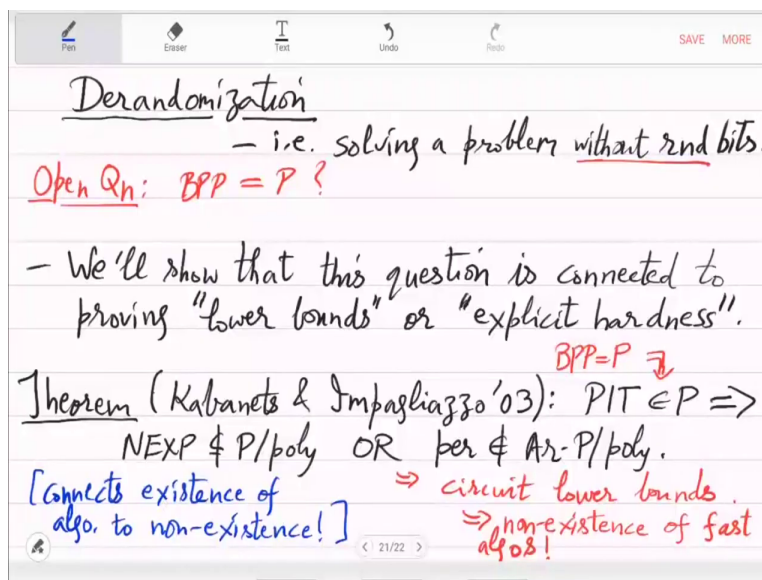 Pen Eraser Text Undo Redo SAVE MORE
Derandomization
- i.e. solving a problem without rnd bits.
Open Qn: BPP = P ?
- We'll show that this question is connected to
proving "lower bounds" or "explicit hardness".
BPP=P ⇒
Theorem (Kabanets & Impagliazzo'03): PIT ∈ P =>
NEXP ⊄ P/poly OR per ∉ Ar-P/poly.
[Connects existence of
algo. to non-existence!]
=> circuit lower bounds.
=> non-existence of fast
algos!
21/22